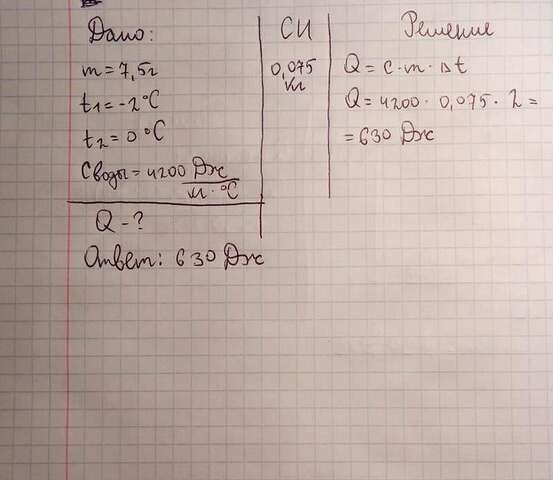 Дано:
m = 7,5г
t₁ = -2°C
t₂ = 0°C
Cводы = 4200 Дж
кг · °C
Q - ?
Ответ: 630 Дж
СИ
0,075
кг
Решение
Q = c · m · Δt
Q = 4200 · 0,075 · 2 =
= 630 Дж